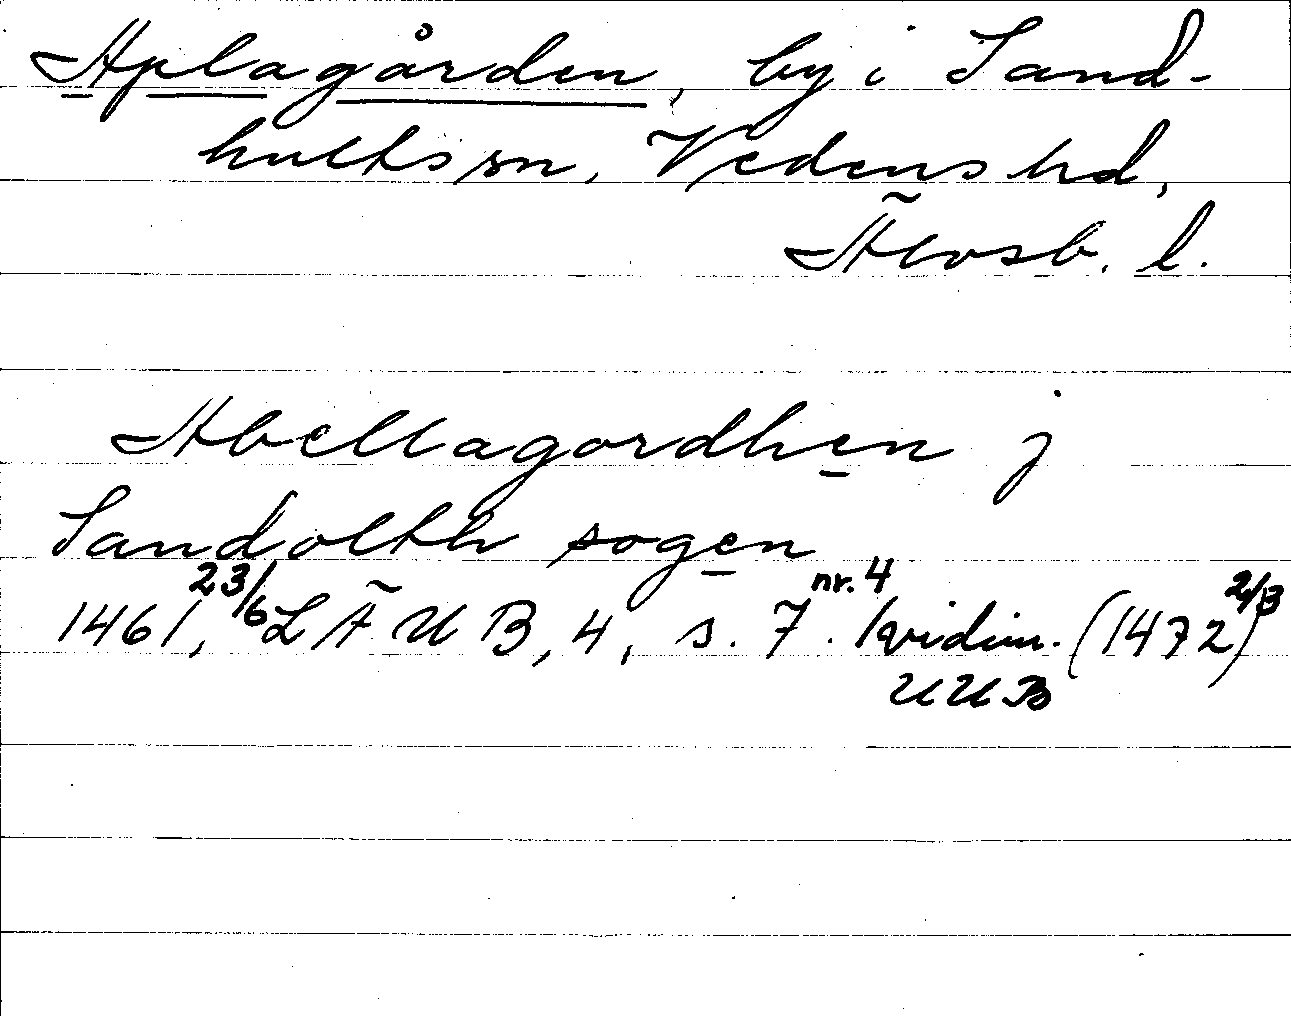 Aplagården, by i Sand-
hults sn, Vedens hd,
Älvsb. l.
Abellagordhen j
Sandolth sogen
1461, 23/6 LÄUB, 4, s. 7. nr. 4 /vidim. (1472) 2/3
UUB